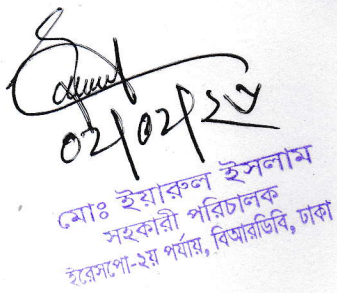 ০২/০২/২৩
মোঃ ইয়ারুল ইসলাম
সহকারী পরিচালক
ইরেসপো-২য় পর্যায়, বিআরডিবি, ঢাকা